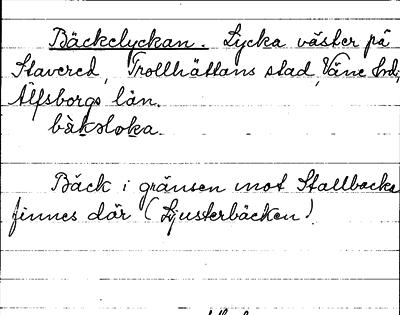 Bäckelyckan. Lycka väster på
Stavered, Trollhättans stad, Väne hd,
Älfsborgs län.
bäkəloka.
Bäck i gränsen mot Stallbacka
finnes där (Ljusterbäcken).